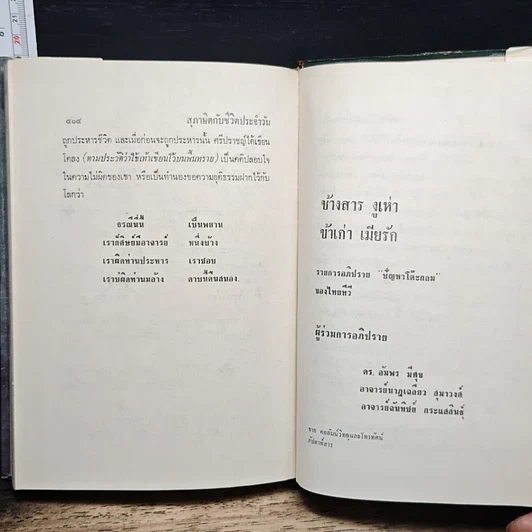 ๕๐๔ สุภาษิตกับชีวิตประจำวัน
ถูกประหารชีวิต และเมื่อก่อนจะถูกประหารนั้น ศรีปราชญ์ได้เขียน
โคลง (ตามประวัติว่าใช้เท้าเขียนไว้บนพื้นทราย) เป็นคติปลอบใจ
ในความไม่ผิดของเขา หรือเป็นทำนองขอความยุติธรรมฝากไว้กับ
โลกว่า
ธรณีนี่นี้ เป็นพยาน
เราก็ศิษย์มีอาจารย์ หนึ่งบ้าง
เราผิดท่านประหาร เราชอบ
เราบ่ผิดท่านมล้าง ดาบนี้คืนสนอง.
ช้างสาร งูเห่า
ข้าเก่า เมียรัก
รายการอภิปราย "ปัญหาโต๊ะกลม"
ของไทยทีวี
ผู้ร่วมการอภิปราย
ดร. อัมพร มีศุข
อาจารย์นาฏเฉลียว สุมาวงศ์
อาจารย์ฉันทิชย์ กระแสสินธุ์
จาก คอลัมน์วิทยุและโทรทัศน์
สัปดาห์สาร
20
21